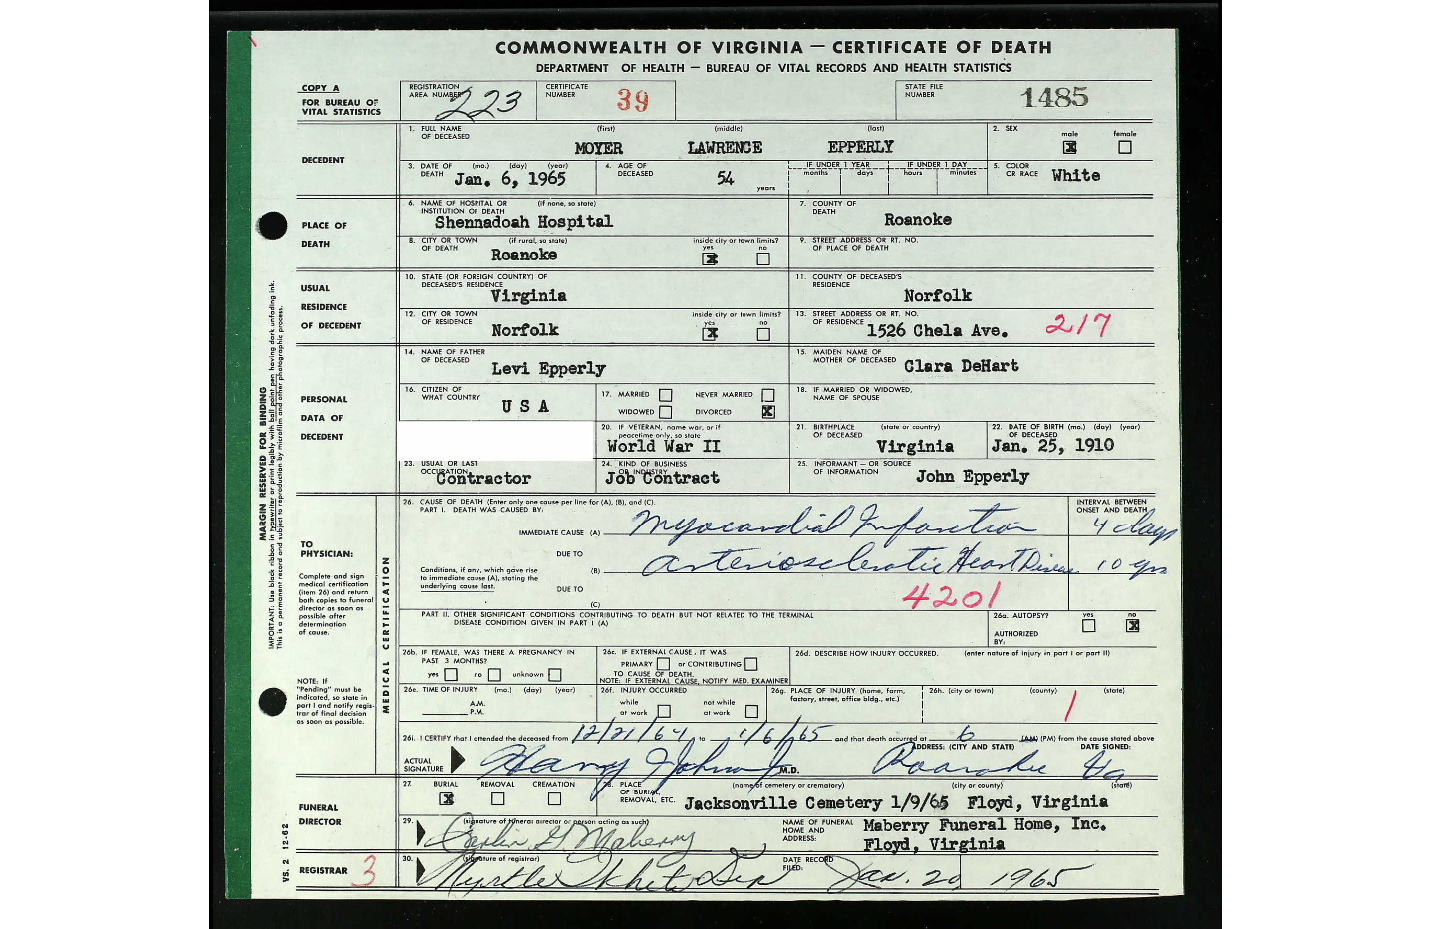 COMMONWEALTH OF VIRGINIA — CERTIFICATE OF DEATH
DEPARTMENT OF HEALTH — BUREAU OF VITAL RECORDS AND HEALTH STATISTICS
COPY A
FOR BUREAU OF
VITAL STATISTICS
REGISTRATION
AREA NUMBER 223
CERTIFICATE
NUMBER 39
STATE FILE
NUMBER 1485
DECEDENT
1. FULL NAME OF DECEASED (first) (middle) (last)
MOYER LAWRENCE EPPERLY
2. SEX male ☒ female ☐
3. DATE OF DEATH (mo.) (day) (year)
Jan. 6, 1965
4. AGE OF DECEASED 54 years
IF UNDER 1 YEAR months days
IF UNDER 1 DAY hours minutes
5. COLOR OR RACE White
PLACE OF
DEATH
6. NAME OF HOSPITAL OR INSTITUTION OF DEATH (if none, so state)
Shennadoah Hospital
7. COUNTY OF DEATH
Roanoke
8. CITY OR TOWN OF DEATH (if rural, so state)
Roanoke
inside city or town limits? yes ☒ no ☐
9. STREET ADDRESS OR RT. NO. OF PLACE OF DEATH
USUAL
RESIDENCE
OF DECEDENT
10. STATE (OR FOREIGN COUNTRY) OF DECEASED'S RESIDENCE
Virginia
11. COUNTY OF DECEASED'S RESIDENCE
Norfolk
12. CITY OR TOWN OF RESIDENCE
Norfolk
inside city or town limits? yes ☒ no ☐
13. STREET ADDRESS OR RT. NO. OF RESIDENCE
1526 Chela Ave. 217
PERSONAL
DATA OF
DECEDENT
14. NAME OF FATHER OF DECEASED
Levi Epperly
15. MAIDEN NAME OF MOTHER OF DECEASED
Clara DeHart
16. CITIZEN OF WHAT COUNTRY
U S A
17. MARRIED ☐ NEVER MARRIED ☐
WIDOWED ☐ DIVORCED ☒
18. IF MARRIED OR WIDOWED, NAME OF SPOUSE
20. IF VETERAN, name war, or if peacetime only, so state
World War II
21. BIRTHPLACE OF DECEASED (state or country)
Virginia
22. DATE OF BIRTH OF DECEASED (mo.) (day) (year)
Jan. 25, 1910
23. USUAL OR LAST OCCUPATION
Contractor
24. KIND OF BUSINESS OR INDUSTRY
Job Contract
25. INFORMANT — OR SOURCE OF INFORMATION
John Epperly
TO
PHYSICIAN:
Complete and sign
medical certification
(item 26) and return
both copies to funeral
director as soon as
possible after
determination
of cause.
NOTE: IF
"Pending" must be
indicated, so state in
part I and notify regis-
trar of final decision
as soon as possible.
MEDICAL CERTIFICATION
26. CAUSE OF DEATH (Enter only one cause per line for (A), (B), and (C).
PART I. DEATH WAS CAUSED BY:
INTERVAL BETWEEN
ONSET AND DEATH
IMMEDIATE CAUSE (A) Myocardial Infarction 4 days
DUE TO
Conditions, if any, which gave rise
to immediate cause (A), stating the
underlying cause last.
(B) Arteriosclerotic Heart Disease 10 yrs
DUE TO
(C) 4201
PART II. OTHER SIGNIFICANT CONDITIONS CONTRIBUTING TO DEATH BUT NOT RELATED TO THE TERMINAL
DISEASE CONDITION GIVEN IN PART I (A)
26a. AUTOPSY? yes ☐ no ☒
AUTHORIZED
BY:
26b. IF FEMALE, WAS THERE A PREGNANCY IN
PAST 3 MONTHS?
yes ☐ no ☐ unknown ☐
26c. IF EXTERNAL CAUSE, IT WAS
PRIMARY ☐ or CONTRIBUTING ☐
TO CAUSE OF DEATH.
NOTE: IF EXTERNAL CAUSE, NOTIFY MED. EXAMINER
26d. DESCRIBE HOW INJURY OCCURRED. (enter nature of injury in part I or part II)
26e. TIME OF INJURY (mo.) (day) (year)
A.M.
P.M.
26f. INJURY OCCURRED
while at work ☐ not while at work ☐
26g. PLACE OF INJURY (home, farm,
factory, street, office bldg., etc.)
26h. (city or town) (county) (state)
26i. I CERTIFY that I attended the deceased from 12/21/64 to 1/6/65 and that death occurred at 6 (AM) (PM) from the cause stated above
ACTUAL
SIGNATURE Harry Johnson M.D.
ADDRESS: (CITY AND STATE) DATE SIGNED:
Roanoke Va
FUNERAL
DIRECTOR
27. BURIAL ☒ REMOVAL ☐ CREMATION ☐
28. PLACE OF BURIAL, REMOVAL, ETC. (name of cemetery or crematory) (city or county) (state)
Jacksonville Cemetery 1/9/65 Floyd, Virginia
29. (signature of funeral director or person acting as such)
G. Maberry
NAME OF FUNERAL
HOME AND
ADDRESS:
Maberry Funeral Home, Inc.
Floyd, Virginia
REGISTRAR 3
30. (signature of registrar)
Myrtle
DATE RECORD
FILED: Jan. 20, 1965
MARGIN RESERVED FOR BINDING
IMPORTANT: Use black ribbon in typewriter or print legibly with ball point pen having dark unfading ink.
This is a permanent record and subject to reproduction by microfilm and other photographic process.
VS. 2 12-62